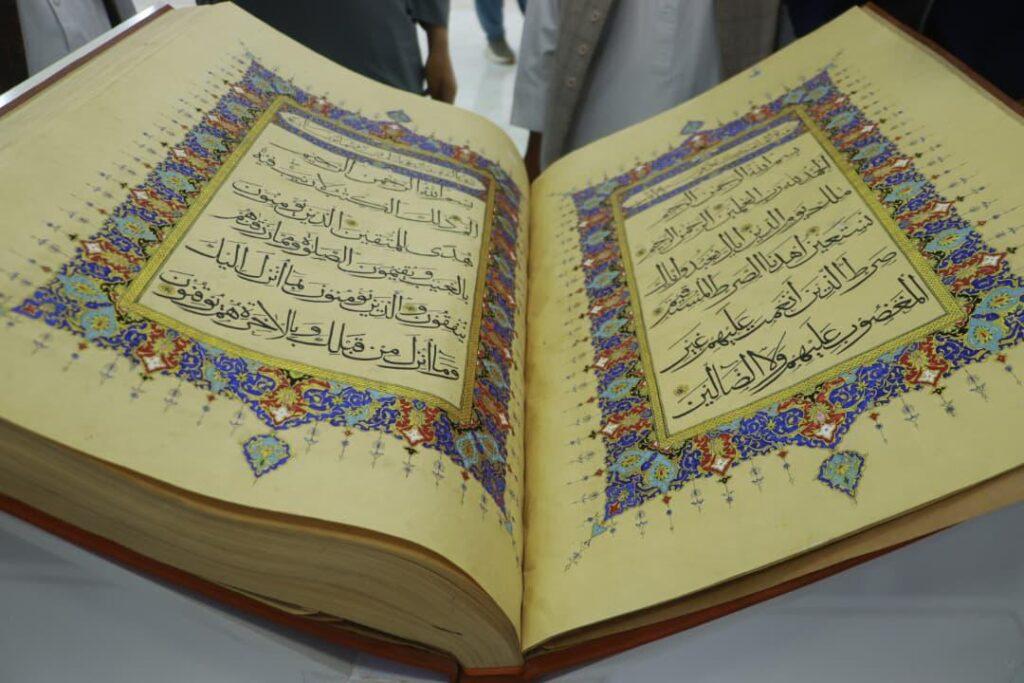 بسم الله الرحمن الرحيم
الحمد لله رب العلمين الرحمن الرحيم
ملك يوم الدين اياك نعبد واياك
نستعين اهدنا الصرط المستقيم
صرط الذين أنعمت عليهم غير
المغضوب عليهم ولا الضالين
بسم الله الرحمن الرحيم
الم ذلك الكتب لا ريب فيه
هدى للمتقين الذين يؤمنون
بالغيب ويقيمون الصلوة ومما رزقنهم
ينفقون والذين يؤمنون بما أنزل اليك
وما أنزل من قبلك وبالاخرة هم يوقنون